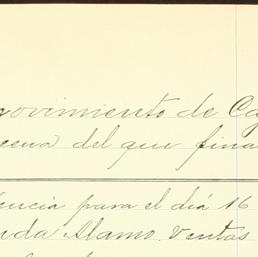 movimiento de Ca
del que fina
encia para el dia 16
uda Alamo. Ventas